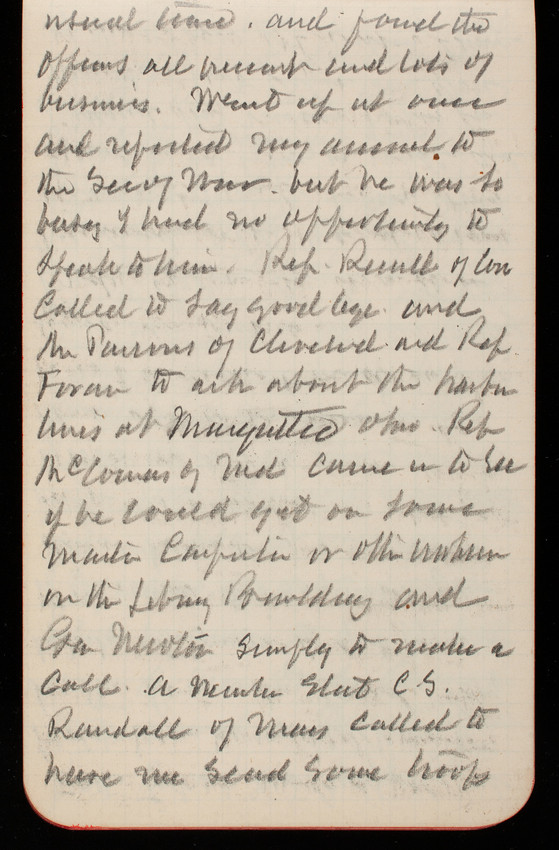 usual time. and found the
officers all present and lots of
business. Went up at once
and reported my arrival to
the Sec of War. but he was so
busy I had no opportunity to
speak to him. Rep. Russell of Con
called to say good bye. and
Mr Parsons of Cleveland and Rep
Foran to ask about the harbor
lines at Marquette Ohio. Rep
McComas of Md came in to see
if he could get on some
Master Carpenter or other
on the Library Building and
Gen Newton simply to make a
Call. A Member Elect C.S.
Randall of Mass called to
have me send some troops